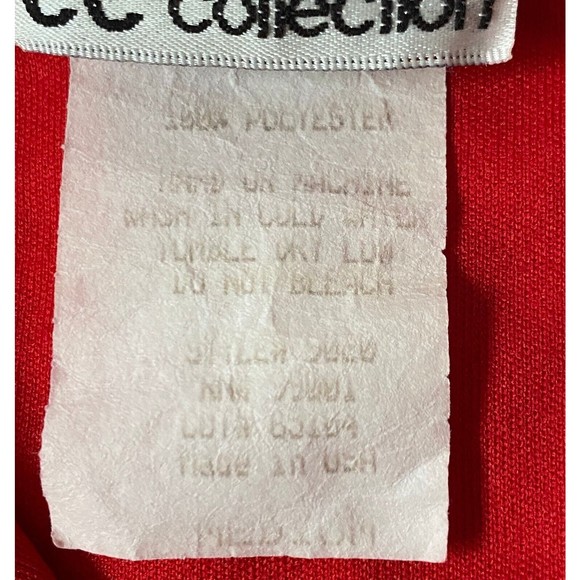 CC Collection
100% POLYESTER
HAND OR MACHINE
WASH IN COLD WATER
TUMBLE DRY LOW
DO NOT BLEACH
STYLE#
RN#
CUT# 63104
Made in USA